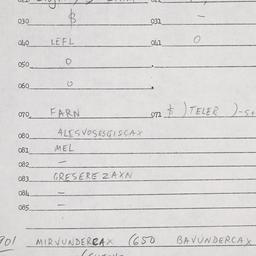 030 $ 031 -
040 LEFL 041 0
050 0
060 0
070 FARN 071 $ ) TELER )-S+
080 ALESVOSESGISCAX
081 MEL
082 -
083 GRESEREZAXN
084 -
085 -
901 MIRVUNDERCAX (650 BAVUNDERCAX